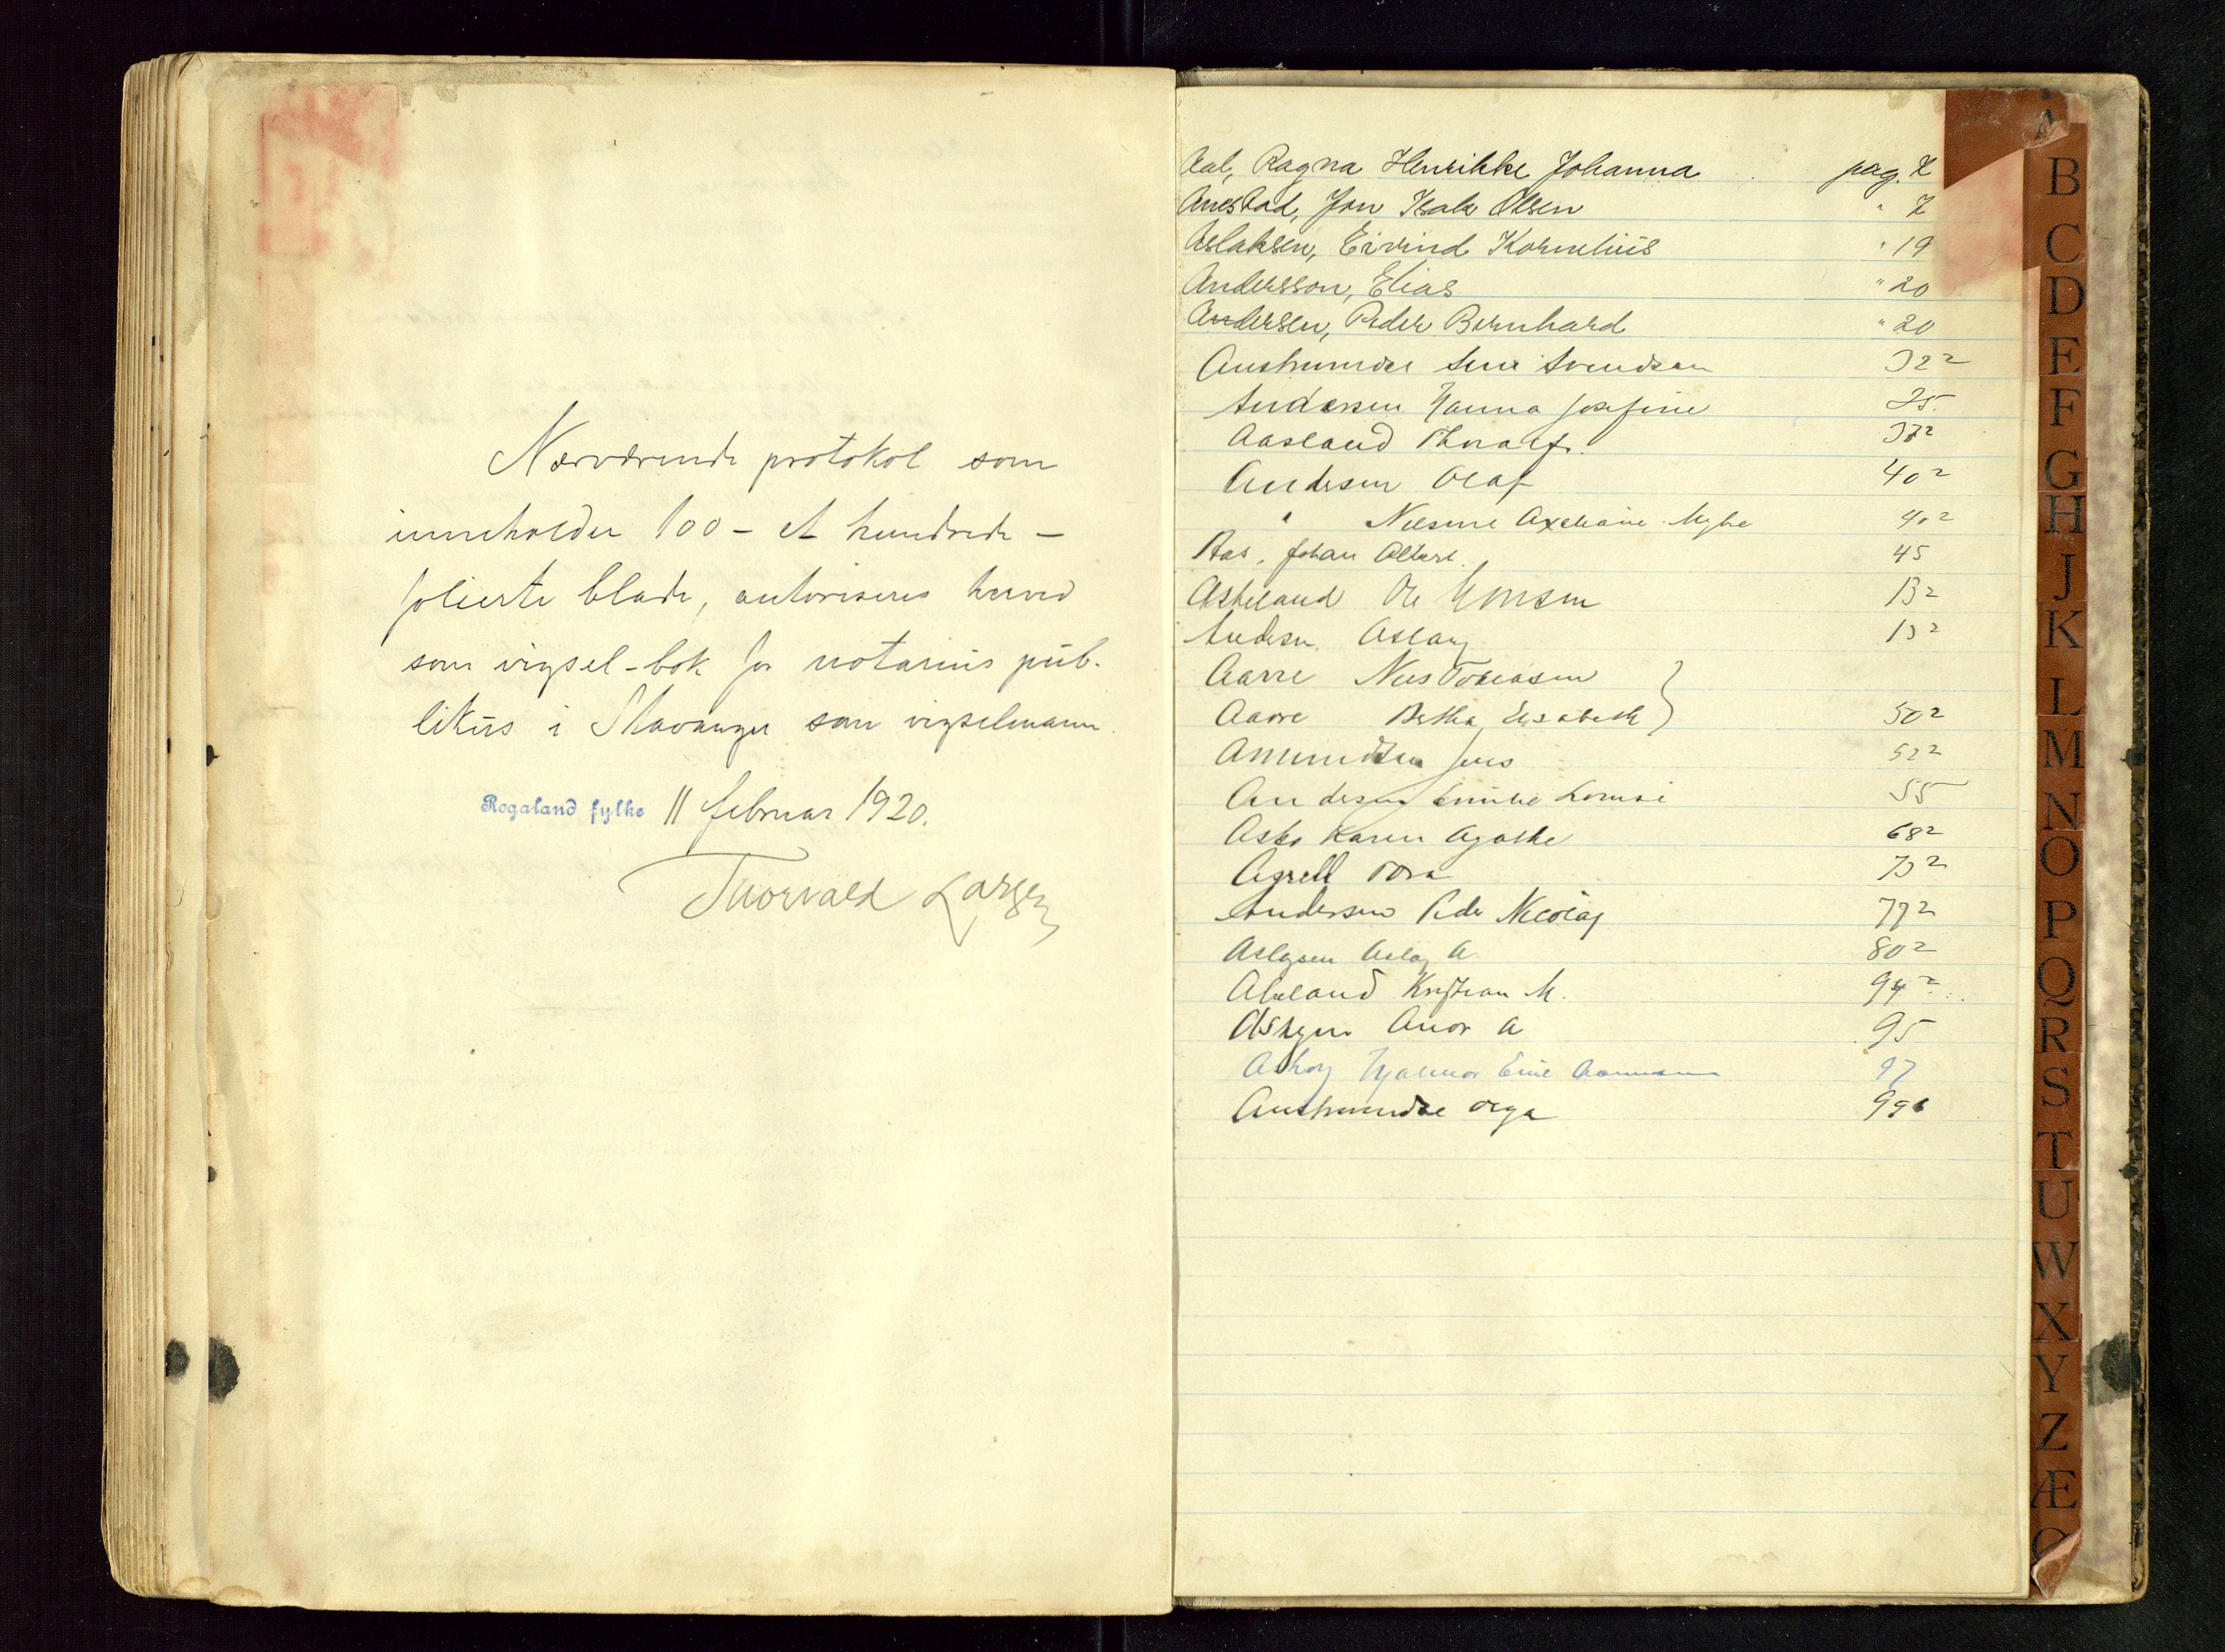 Nærværende protokol som
inneholder 100 - et hundrede -
folierte blade, autoriseres herved
som vigsel-bok for notarius pub-
likus i Stavanger som vigselmann.
Rogaland fylke 11 februar 1920.
Thorvald Larsen
A
Aal, Ragna Henrikke Johanna pag. 7
Anestad, Jon Isak Olsen " 7
Aslaksen, Eivind Kornelius " 19
Andersson, Elias " 20
Andersen, Peder Bernhard " 20
Austrumdal Svendsen 322
Andersen Hanna Josefine 35
Aasland Thoralf
Andersen Olaf 402
" Nilsine 402
Aas, Johan Albert. 45
Askeland Ole 132
Andersen Aslaug 132
Aarre Nils Tobiasen
Aarre Bertha Elisabeth } 502
Amundsen Jens 522
Andersen Emilie Lovise 55
Asbo Karen Agathe 682
Agrell Tora 732
Andersen Peder Nicolay 772
Aslagsen Aslag A 802
Abeland Kristian M. 942
A 95
Hjalmar Emil 97
Austrumdal Olga
B
C
D
E
F
G
H
J
K
L
M
N
O
P
Q
R
S
T
U
W
X
Y
Z
Æ